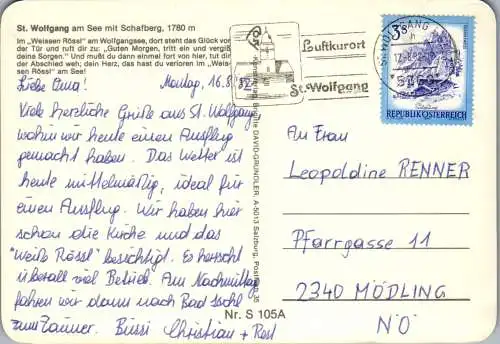 St. Wolfgang am See mit Schafberg, 1780 m
Im „Weissen Rössl" am Wolfgangsee, dort steht das Glück vor
der Tür und ruft dir zu: „Guten Morgen, tritt ein und vergiß
Und mußt du dann einmal fort von hier, tut dir
der Abschied weh; dein Herz, das hast du verloren im „Weis-
sen Rössl" am See!
Liebe Oma! Montag, 16.8.
Viele herzliche Grüße aus St. Wolfgang
wohin wir heute einen Ausflug
gemacht haben. Das Wetter ist
heute mittelmäßig, ideal für
einen Ausflug. Wir haben hier
schon die Kirche und das
"weiße Rössl" besichtigt. Es herrscht
überall viel Betrieb. Am Nachmittag
fahren wir dann nach Bad Ischl
zum Zauner. Bussi Christian + Rest
DAVID-GRÜNDLER, A-5013 Salzburg,
Nr. S 105A
Luftkurort
St. Wolfgang
ST. WOLFGANG
S 3
REPUBLIK ÖSTERREICH
An Frau
Leopoldine RENNER
Pfarrgasse 11
2340 MÖDLING
NÖ